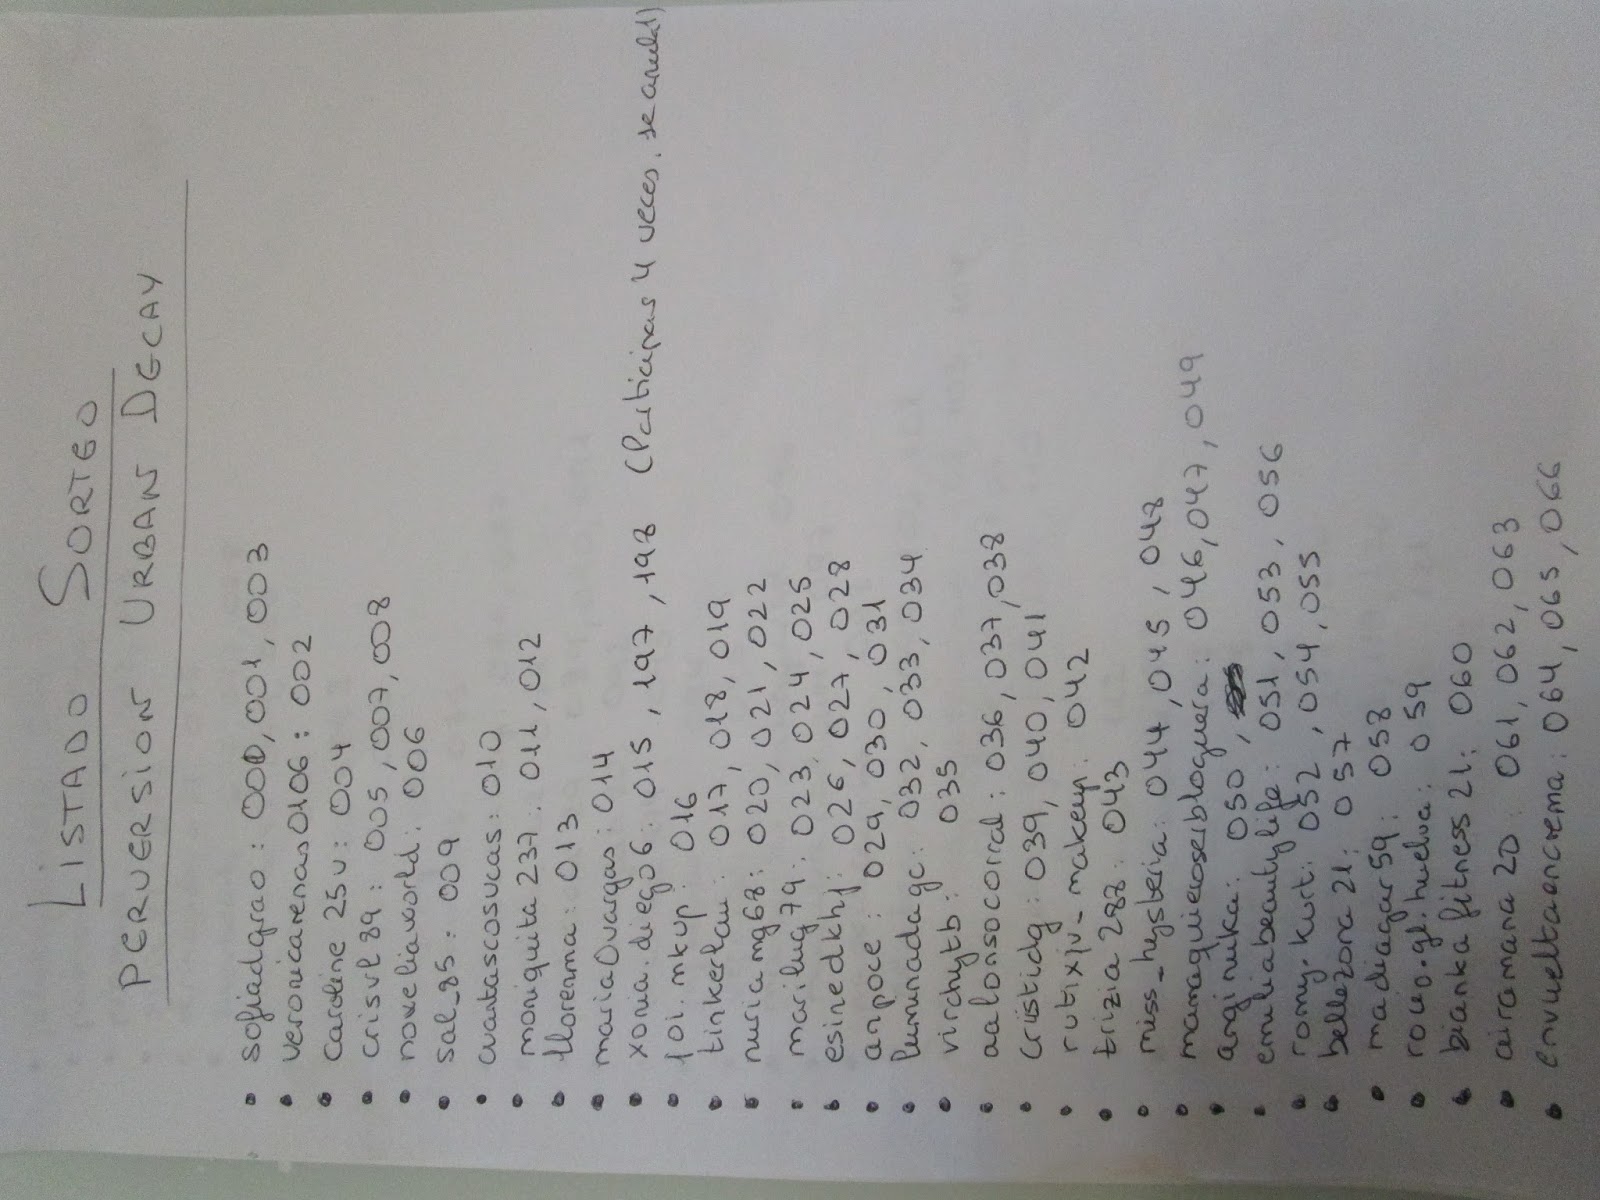 LISTADO SORTEO
PERVERSION URBAN DECAY
• sofiadgrao : 000, 001, 003
• veronicarenas0106 : 002
• Caroline 25v : 004
• crisvl89 : 005, 007, 008
• noveliaworld : 006
• sal_85 : 009
• cuantascosucas : 010
• moniquita 237 : 011, 012
• llorenma : 013
• maria0vargas : 014
• xonia.diego6 : 015, 197, 198 (Participas 4 veces, se anula 1)
• loi.mkup : 016
• tinkerlau : 017, 018, 019
• nuriamg68 : 020, 021, 022
• marilug79 : 023, 024, 025
• esinedkhj : 026, 027, 028
• anpoce : 029, 030, 031
• lumunadagc : 032, 033, 034
• virchytb : 035
• aalonsocorral : 036, 037, 038
• Cristidg : 039, 040, 041
• rutixiv_makeup : 042
• trizia288 : 043
• miss_hysteria : 044, 045, 048
• mamaquieroserbloguera : 046, 047, 049
• anginuka : 050,
• emiliabeautylife : 051, 053, 056
• romy.kurt : 052, 054, 055
• bellezona 21 : 057
• madiagar59 : 058
• rocio.gl.huelva : 059
• bianka fitness 21 : 060
• airamana 20 : 061, 062, 063
• envueltaencrema : 064, 065, 066